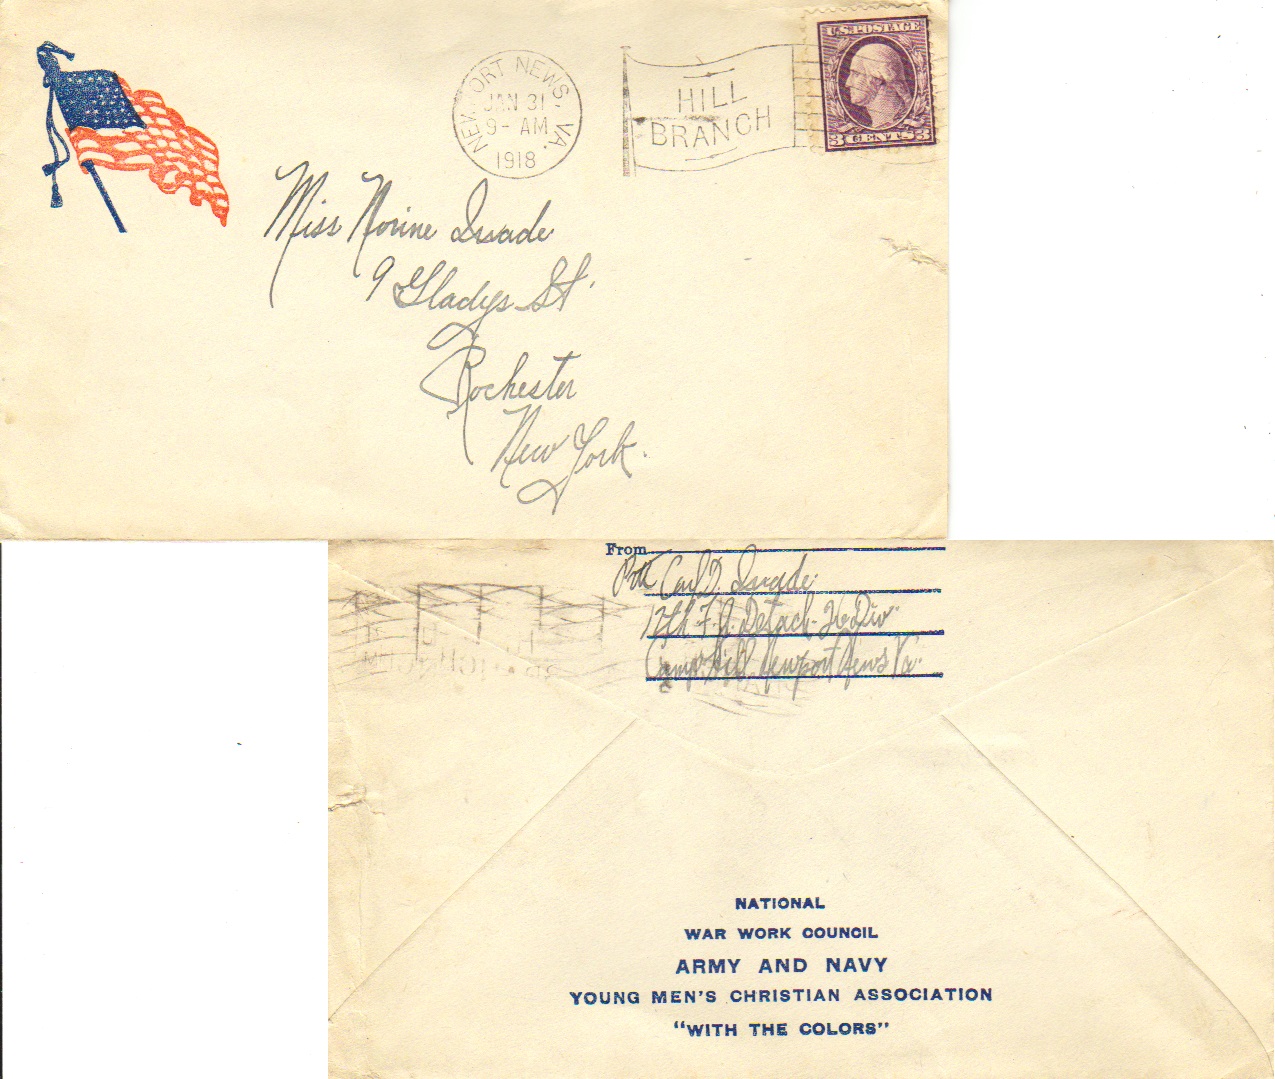 NEWPORT NEWS, VA.
JAN 31
9- AM
1918
HILL
BRANCH
U.S. POSTAGE
3 CENTS 3
Miss Norine Quade
9 Gladys St.
Rochester
New York.
From
Carl D. Quade
12th F. A. Detach.
Camp Hill Newport News Va.
NATIONAL
WAR WORK COUNCIL
ARMY AND NAVY
YOUNG MEN'S CHRISTIAN ASSOCIATION
"WITH THE COLORS"